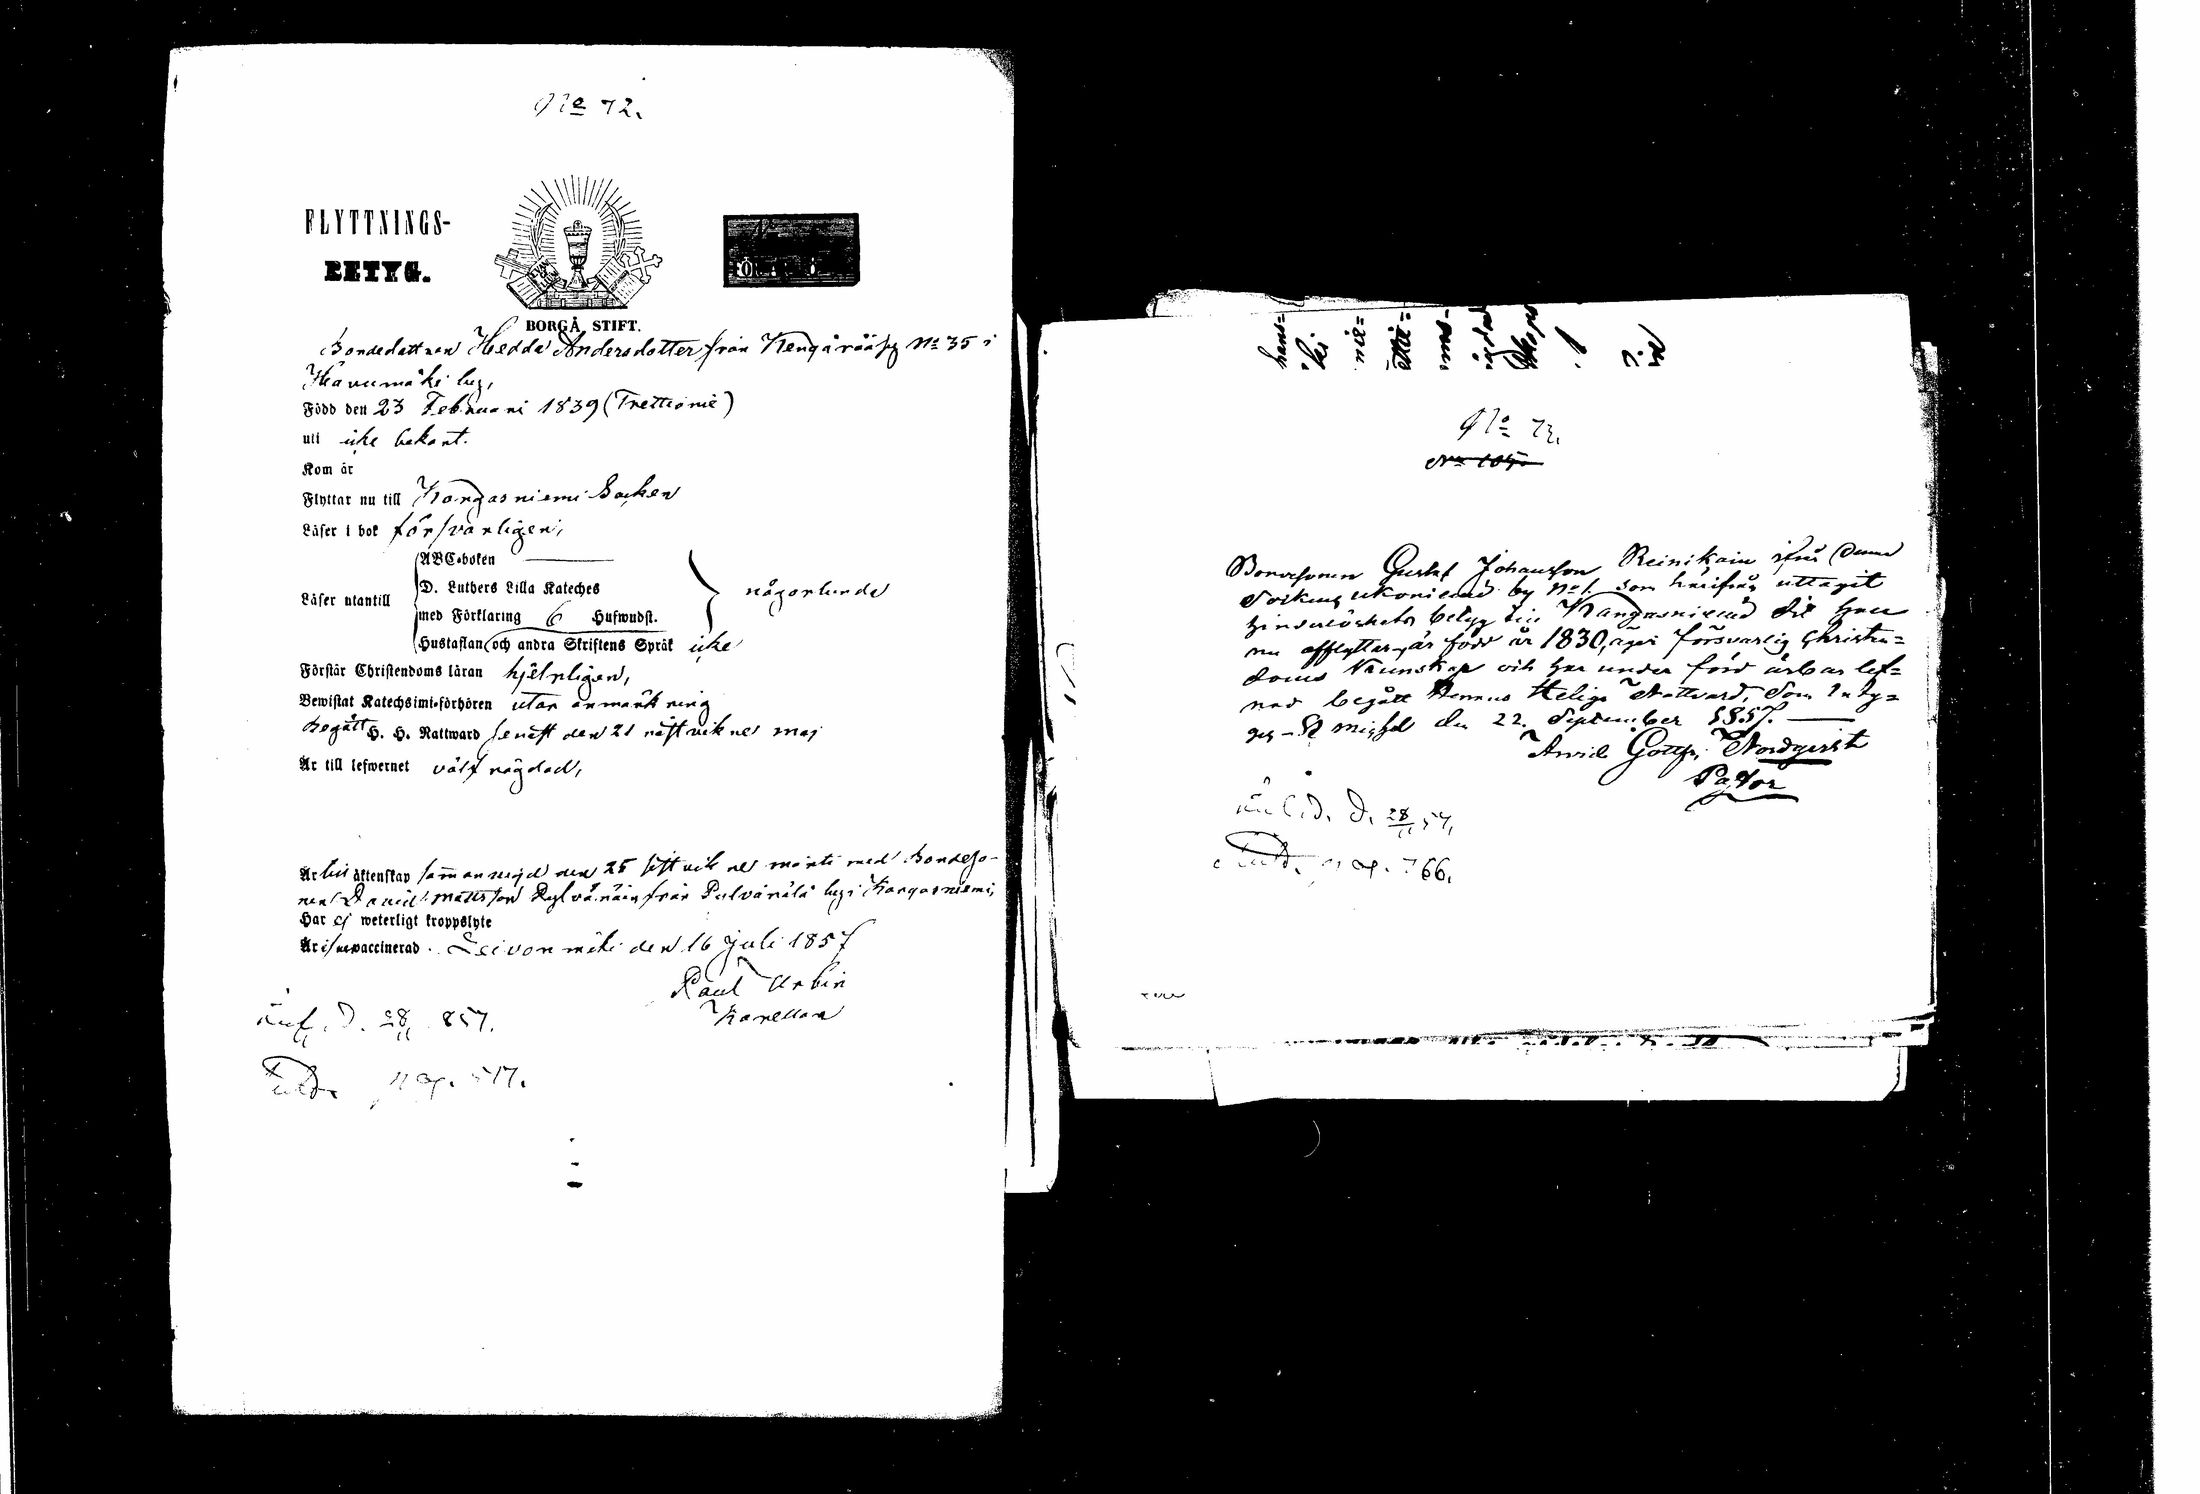 No 72.
FLYTTNINGS-
BETYG.
BORGÅ STIFT.
Bondedottren Hedda Andersdotter från Kengärääsg No 35 i
Havumäki by,
Född den 23 Februari 1839 (Trettionie)
uti icke bekant.
Kom år
Flyttar nu till Kangasniemi Socken
Läser i bok försvarligen,
ABC-boken
D. Luthers Lilla Kateches
Läser utantill
någorlunda
med Förklaring 6 Hufwudst.
Hustaflan (och andra Skriftens Språk icke
Förstår Christendoms läran hjelpligen,
Bewistat Katechsimi-förhören utan anmärkning
Begått H. H. Nattward senast den 21 nästvikne maj
Är till lefwernet välfrägdad,
Är till äktenskap sammanvigd den 25 sistvikne med Bondeso-
nen David Mattsson från Pulvänälä by i Kangasniemi,
Har ej weterligt kroppslyte
Är vaccinerad. Leivonmäki den 16 Juli 1857
Paul Urbin
D. 28/11 857.
pag. 517.
No 73.
No 105
Bondesonen Gustaf Johansson Reinikain ifrån denna
Sockens by No 1. som härifrån uttagit
hinderlöshets betyg till Kangasniemi dit han
nu afflyttar, är född år 1830, äger försvarlig Christen-
doms Kunskap och har under förd ärbar lef-
nad begått Herrans Heliga Nattvard, Som Inty-
gas - St Michel den 22. September 1857.
Arvid Gottfr. Nordqvist
Pastor
D. 28/11 57,
pag. 766.